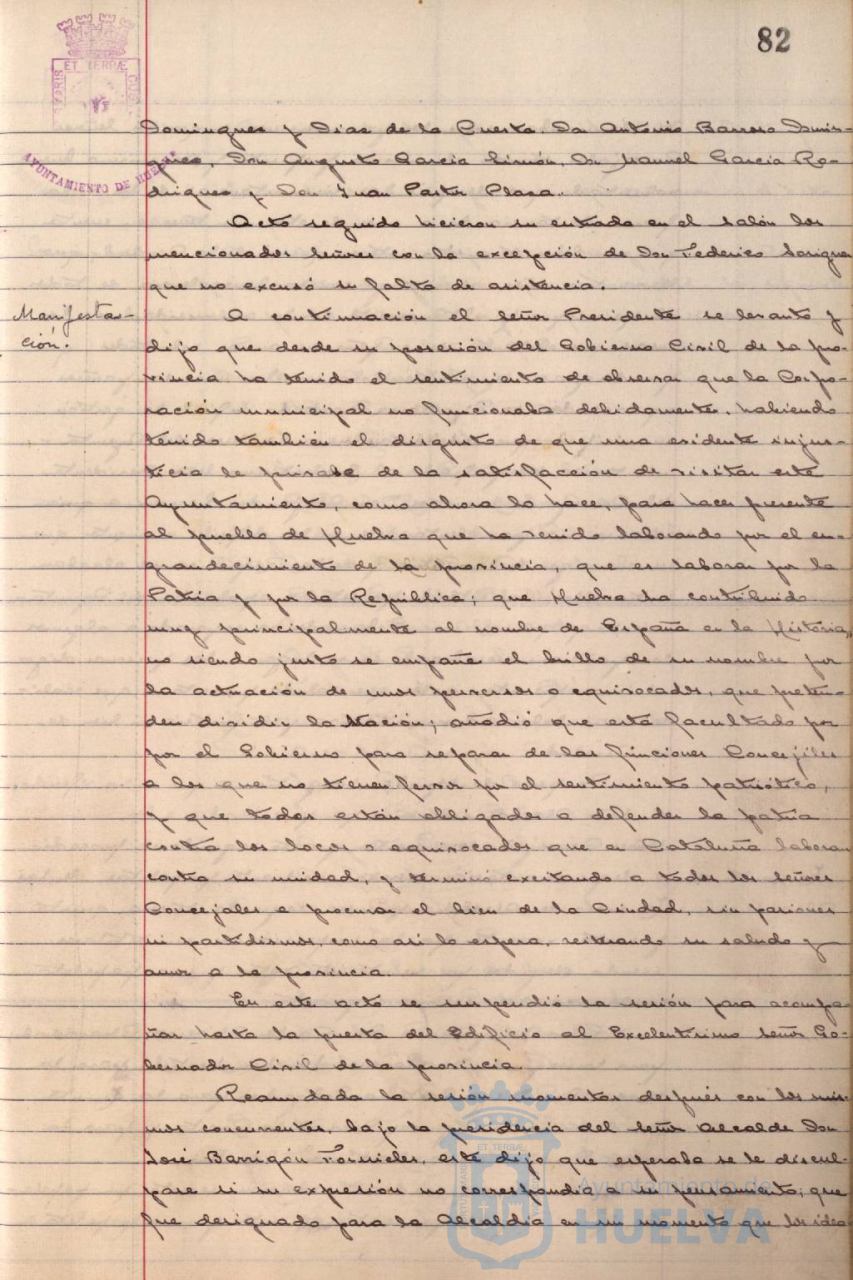 82
ET TERRÆ
AYUNTAMIENTO DE HUELVA
Dominguez y Diaz de la Cuesta, Don Antonio Barroso Domin-
guez, Don Augusto Garcia Simón, Don Manuel Garcia Ro-
driguez y Don Juan Pastor Plaza.
Acto seguido hicieron su entrada en el salón los
mencionados señores con la excepción de Don Federico
que no excusó su falta de asistencia.
Manifesta-
ción.
A continuación el Señor Presidente se levantó y
dijo que desde su posesión del Gobierno Civil de la pro-
vincia ha tenido el sentimiento de observar que la Corpo-
ración municipal no funcionaba debidamente, habiendo
tenido también el disgusto de que una evidente injus-
ticia le privase de la satisfacción de visitar este
Ayuntamiento, como ahora lo hace, para hacer presente
al pueblo de Huelva que ha venido laborando por el en-
grandecimiento de la provincia, que es laborar por la
Patria y por la República; que Huelva ha contribuido
muy principalmente al nombre de España en la Historia,
no siendo justo se empañe el brillo de su nombre por
la actuación de unos perversos o equivocados, que preten-
den dividir la Nación; añadió que está facultado por
por el Gobierno para separar de las funciones Concejiles
a los que no tienen fervor por el sentimiento patriótico,
y que todos están obligados a defender la patria
contra los locos o equivocados que en Cataluña laboran
contra su unidad, y terminó excitando a todos los señores
Concejales a procurar el bien de la Ciudad, sin pasiones
ni partidismos, como asi lo espera, reiterando su saludo y
amor a la provincia.
En este acto se suspendió la sesión para acompa-
ñar hasta la puerta del Edificio al Excelentísimo Señor Go-
bernador Civil de la provincia.
Reanudada la sesión momentos después con los mis-
mos concurrentes, bajo la presidencia del señor Alcalde Don
José Barrigón Fornieles, este dijo que esperaba se le discul-
pase si su expresión no correspondia a su pensamiento; que
fue designado para la Alcaldía en un momento que los idea-
Ayuntamiento de
HUELVA